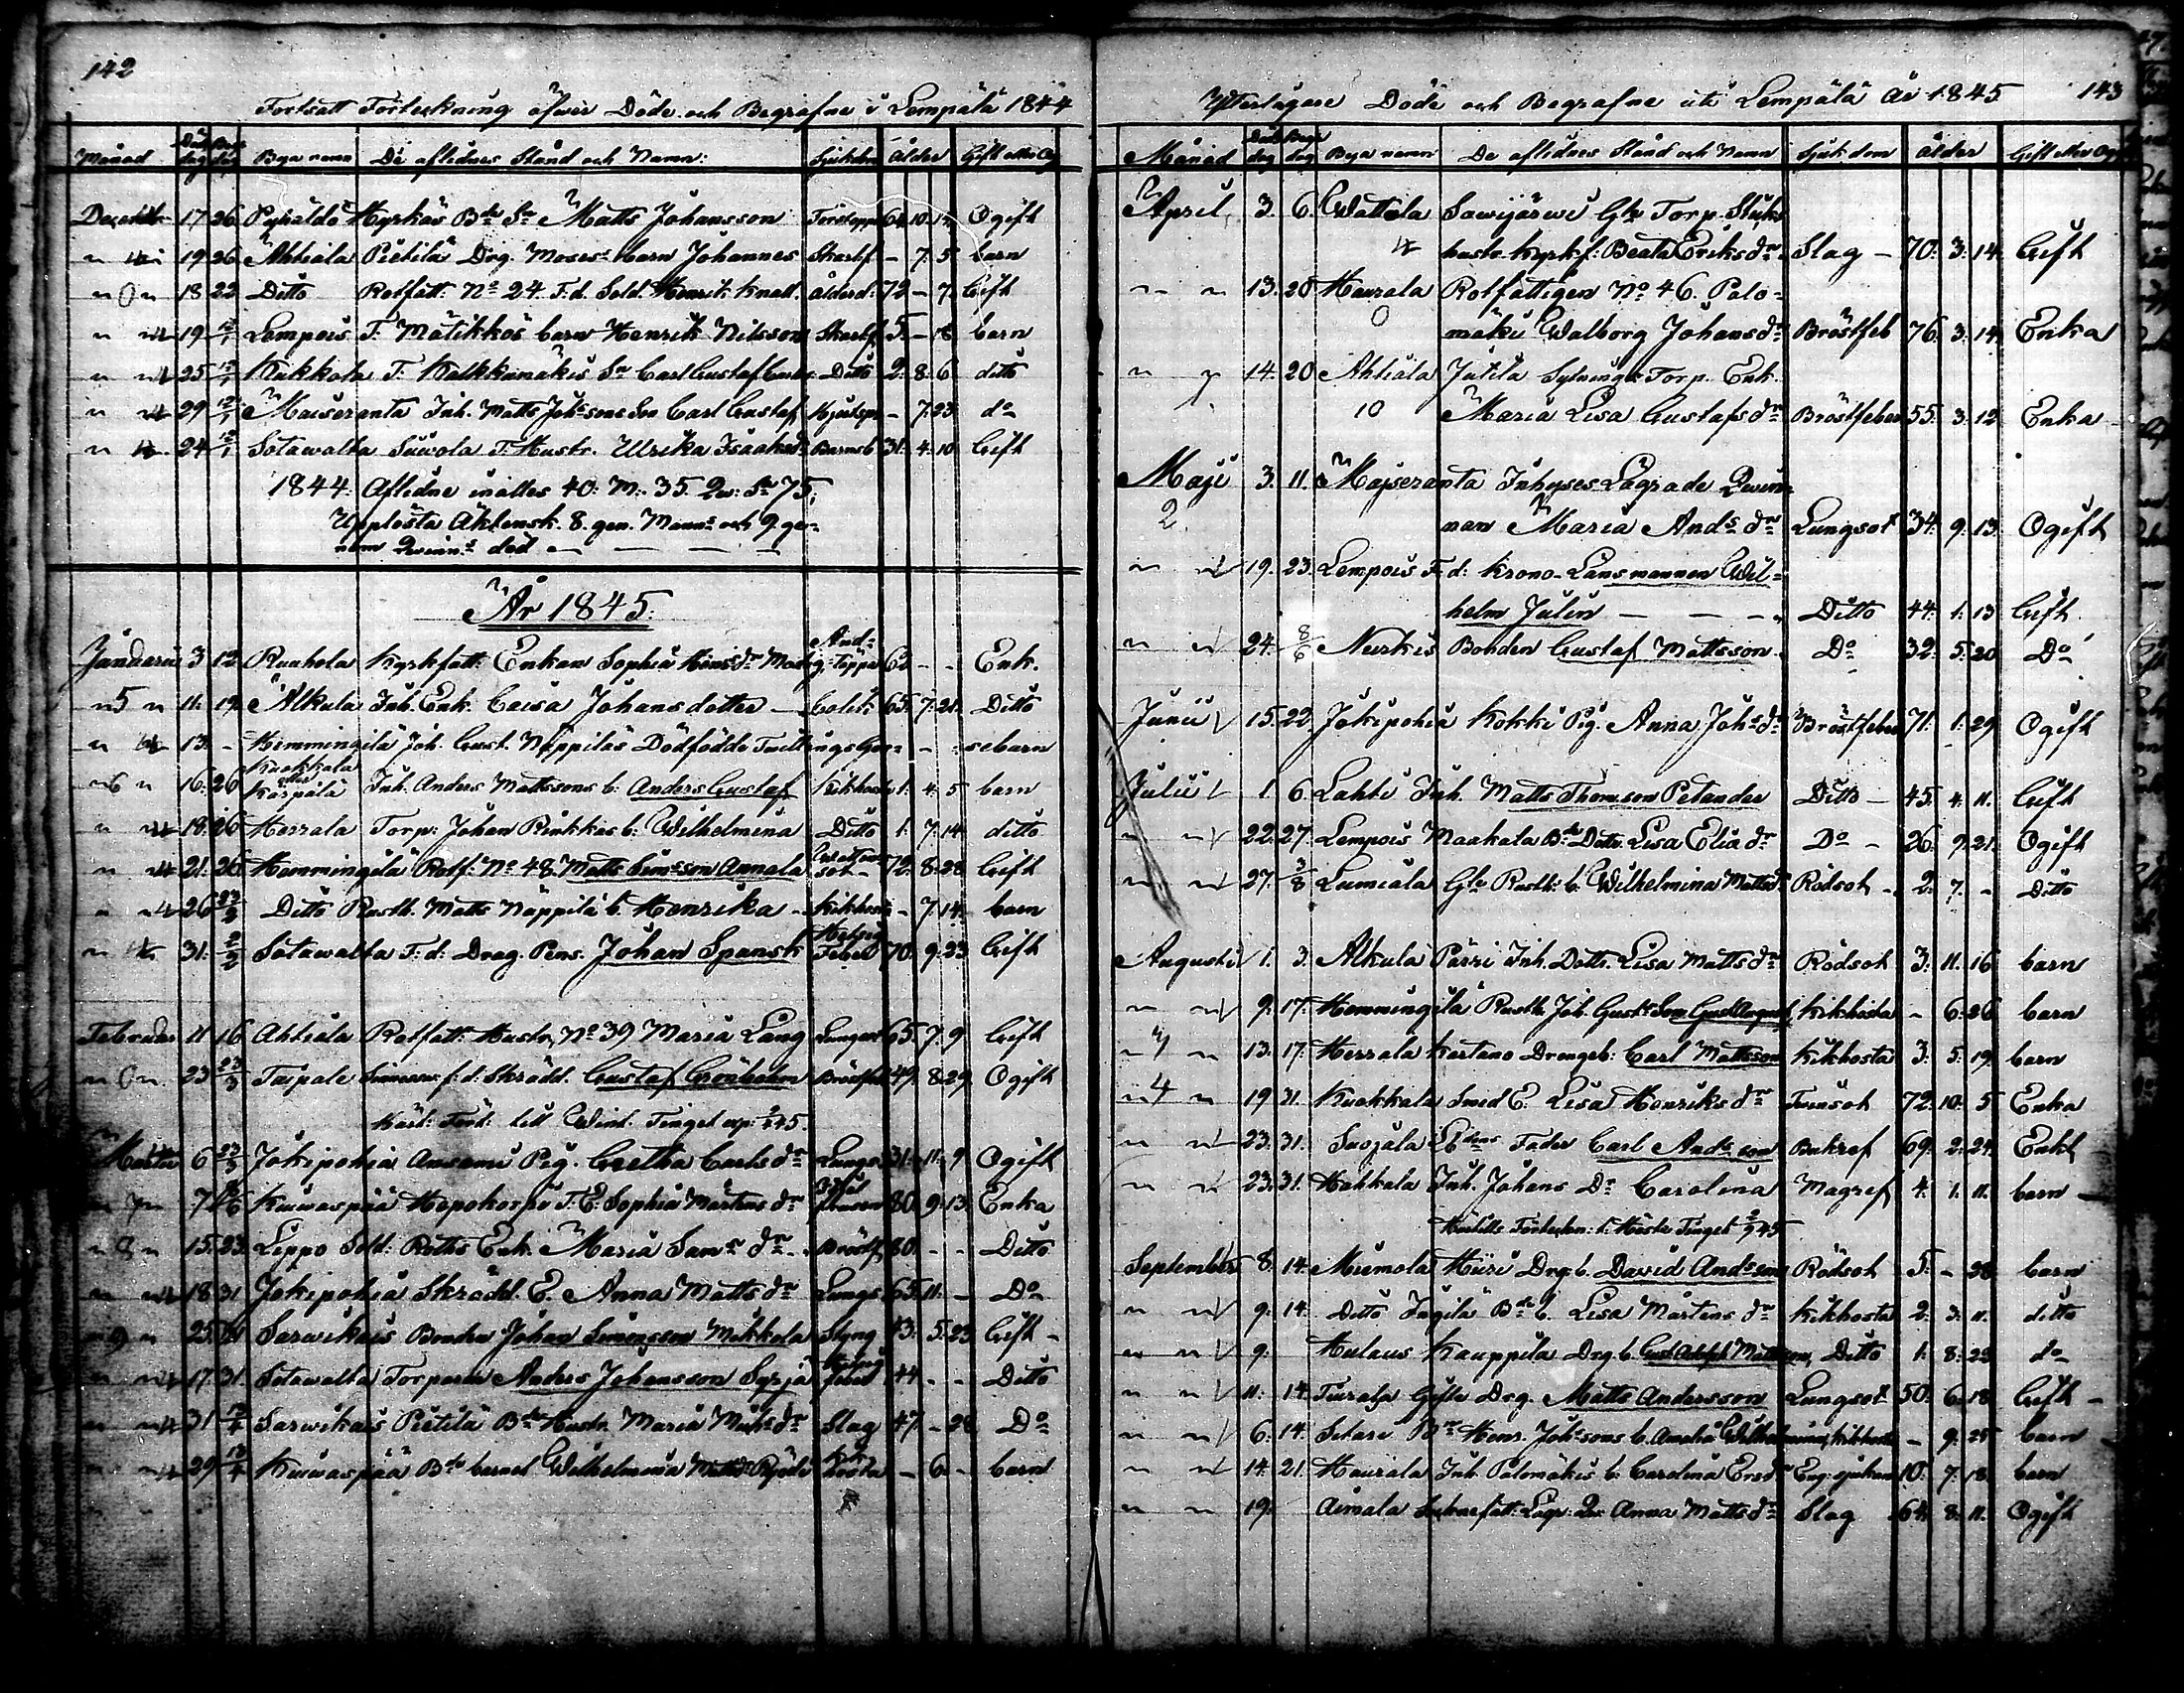 142
Fortsatt Förteckning öfwer Döde och Begrafne i Lempälä 1844
Månad Död dag Begr dag Bya namn De aflidnes Stånd och Namn: Sjukdom Ålder Gift eller Og
December 17 26 Hyrkäs Bde Sn Matts Johansson 64 10 Ogift
" " 19 26 Ahtiala Pietilä Drg. Moses: barn Johannes Skarlf - 7 5 barn
" 0 " 18 22 Ditto Rotfatt: No 24 F.d. Sold. Henrik Knall. ålderd: 72 - 7 Gift
" " 19 12/1 Lempois T. Mätikkös barn Henrik Nilsson Skarlf 5 - 18 barn
" " 25 12/1 Kukkola T. Kalkkamäkis Sn Carl Gustaf Ditto 2 8 6 ditto
" " 29 12/1 Maiseranta Inh. Matts Johssons Son Carl Gustaf - 7 23 do
" " 24 12/1 Sotawalta Suwola T. Hustr. Ulrika Isaaksdr Barnsb 31 4 10 Gift
1844 Aflidne inalles 40: M:, 35 Qw: Sa 75,
Upplösta Äktensk. 8. gen. Manns och 9 ge-
nom Qwinns död — — — —
År 1845.
Januarii 3 12 Ruuhola Kyrkfatt: Enkan Sophia Hinsdr And- täppa 62 - - Enk.
" 5 " 11 19 Alkula Inh. Enk. Caisa Johansdotter — Colik 65 7 21 Ditto
" " 13 - Hemmingilä Joh. Gust. Näppiläs Dödfödde Twillings - - - barn
" 6 " 16 26 Kuokkala eller Karpala Inh. Anders Mattssons b: Anders Gustaf Kikhosta 1 4 5 barn
" " 18 26 Herrala Torp: Johan Rinkkas b: Wilhelmina Ditto 1 7 14 ditto
" " 21 26 Hemmingilä Rotf: No 48 Matts Simsson Annala Watten- sot - 72 8 28 Gift
" " 26 23/2 Ditto Rusth. Matts Näppilä b. Henrika Kikhosta - 7 14 barn
" " 31 2/2 Sotawalta F: d: Drag. Pens. Johan Spansk Feber 70 9 23 Gift
Februar 11 16 Ahtiala Rotfatt: Hustr, No 39 Maria Lång Lungsot 65 7 9 Gift
" 0 " 23 23/3 Taipale f: d: Skrädd. Gustaf Grönholm Bröstfeb 49 8 29 Ogift
Kärl: Fört: till Wint. Tinget up: 45.
Martii 6 23/3 Jokipohia Ansami Pig. Gretha Carlsdr Lungs 31 11 9 Ogift
" 7 " 7 Kuiwaspää Hepokorpi T. E. Sophia Mårtensdr 80 9 13 Enka
" 8 " 15 23 Lippo Sold: Rotts Enk: Maria Samsdr Bröstf 80 - - Ditto
" " 18 31 Jokipohia Skrädd. E. Anna Mattsdr Lungs 65 11 - Do
" 9 " 25 31 Sarwikais Bonden Johan Simonsson Mikkola Styng 43 5 23 Gift
" " 17 31 Sotawalta Torparen Anders Johansson Syrjä feber 44 - - Ditto
" " 31 13/4 Sarwikais Pietilä Bde Hustr. Maria Michsdr Slag 47 - 28 Do
" " 29 13/4 Kuiwaspää Bde barnet Wilhelmina Kik- hosta - 6 - barn
Ytterligare Döde och Begrafne uti Lempälä År 1845 143
Månad Död dag Begr dag Bya namn De aflidnes Stånd och Namn Sjukdom ålder Gift eller Og
April 3 6 Wattola Sawijärwi Glz Torp.
hustr. Kyrkf: Beata Eriksdr Slag - 70 3 14 Gift
" " 13 20 Haurala Rotfattigen No 46 Palo-
mäki Walborg Johansdr Bröstfeb 76 3 14 Enka
" " 14 20 Ahtiala Jutila Sytnings Torp. Enk.
10 Maria Lisa Gustafsdr Bröstfeber 55 3 12 Enka
Maji 3 11 Majseranta Inhyses Lägrade Qwin-
2 nan Maria Andsdr Lungsot 34 9 13 Ogift
" " 19 23 Lempois F. d: Krono-Länsmannen Wil-
helm Julin — — — Ditto 44 1 13 Gift
" " 24 8/6 Nurkis Bonden Gustaf Mattsson Do 32 5 20 Do
Junii 15 22 Jokipohia Kokki Pig. Anna Johsdr Bröstfeber 71 1 29 Ogift
Julii 1 6 Lahti Inh. Matts Thomson Petander Ditto — 45 4 11 Gift
" " 22 27 Lempois Maakala Bde Dottr. Lisa Eliædr Do - 26 9 21 Ogift
" " 27 3/8 Lumiala Gls Rusth: b. Wilhelmina Mattsdr Rödsot - 2 7 - Ditto
Augusti 1 3 Alkula Pärri Inh. Dottr. Lisa Mattsdr Rödsot 3 11 16 barn
" " 9 17 Hemmingilä Rusth. Joh. Gusts Son Gust August Kikhosta - 6 26 barn
" " 13 17 Herrala Kartano Drengsb: Carl Mattsson Kikhosta 3 5 19 barn
" 4 " 19 31 Kuokkala Smed E. Lisa Henriksdr Twinsot 72 10 5 Enka
" " 23 31 Suojala Fader Carl Andsson Bukref 69 2 24 Enkl
" " 23 31 Hahkala Inh. Johans Dr Carolina Magref 4 1 11 barn
Förteckn: t. Höste Tinget 45
September 8 14 Miemola Hiiri Drg b. David Andsson Rödsot 5 - 28 barn
" " 9 14 Ditto Ingilä Bde b. Lisa Mårtensdr Kikhosta 2 3 11 ditto
" " 9 Hulaus Kauppila Drg b. Gust Adolph Mattsson Ditto 1 8 22 do
" " 11 14 Turala Gifte Drg. Matts Andersson Lungsot 50 6 18 Gift
" " 6 14 Setari Henr. Johssons b. Amalia Wilhelmina Kikhosta - 9 25 barn
" " 14 21 Haurala Inh. Palomäkis b: Carolina Ersdr Eng: sjukan 10 7 18 barn
" " 19 Aimala Lägr: Qv. Anna Mattsdr Slag 64 8 11 Ogift